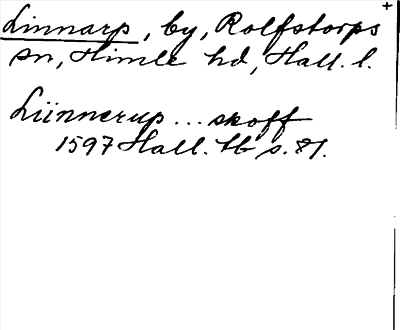 Linnarp, by, Rolfstorps +
sn, Himle hd, Hall. l.
Lünnerup ... skoff
1597 Hall. tb s. 81.